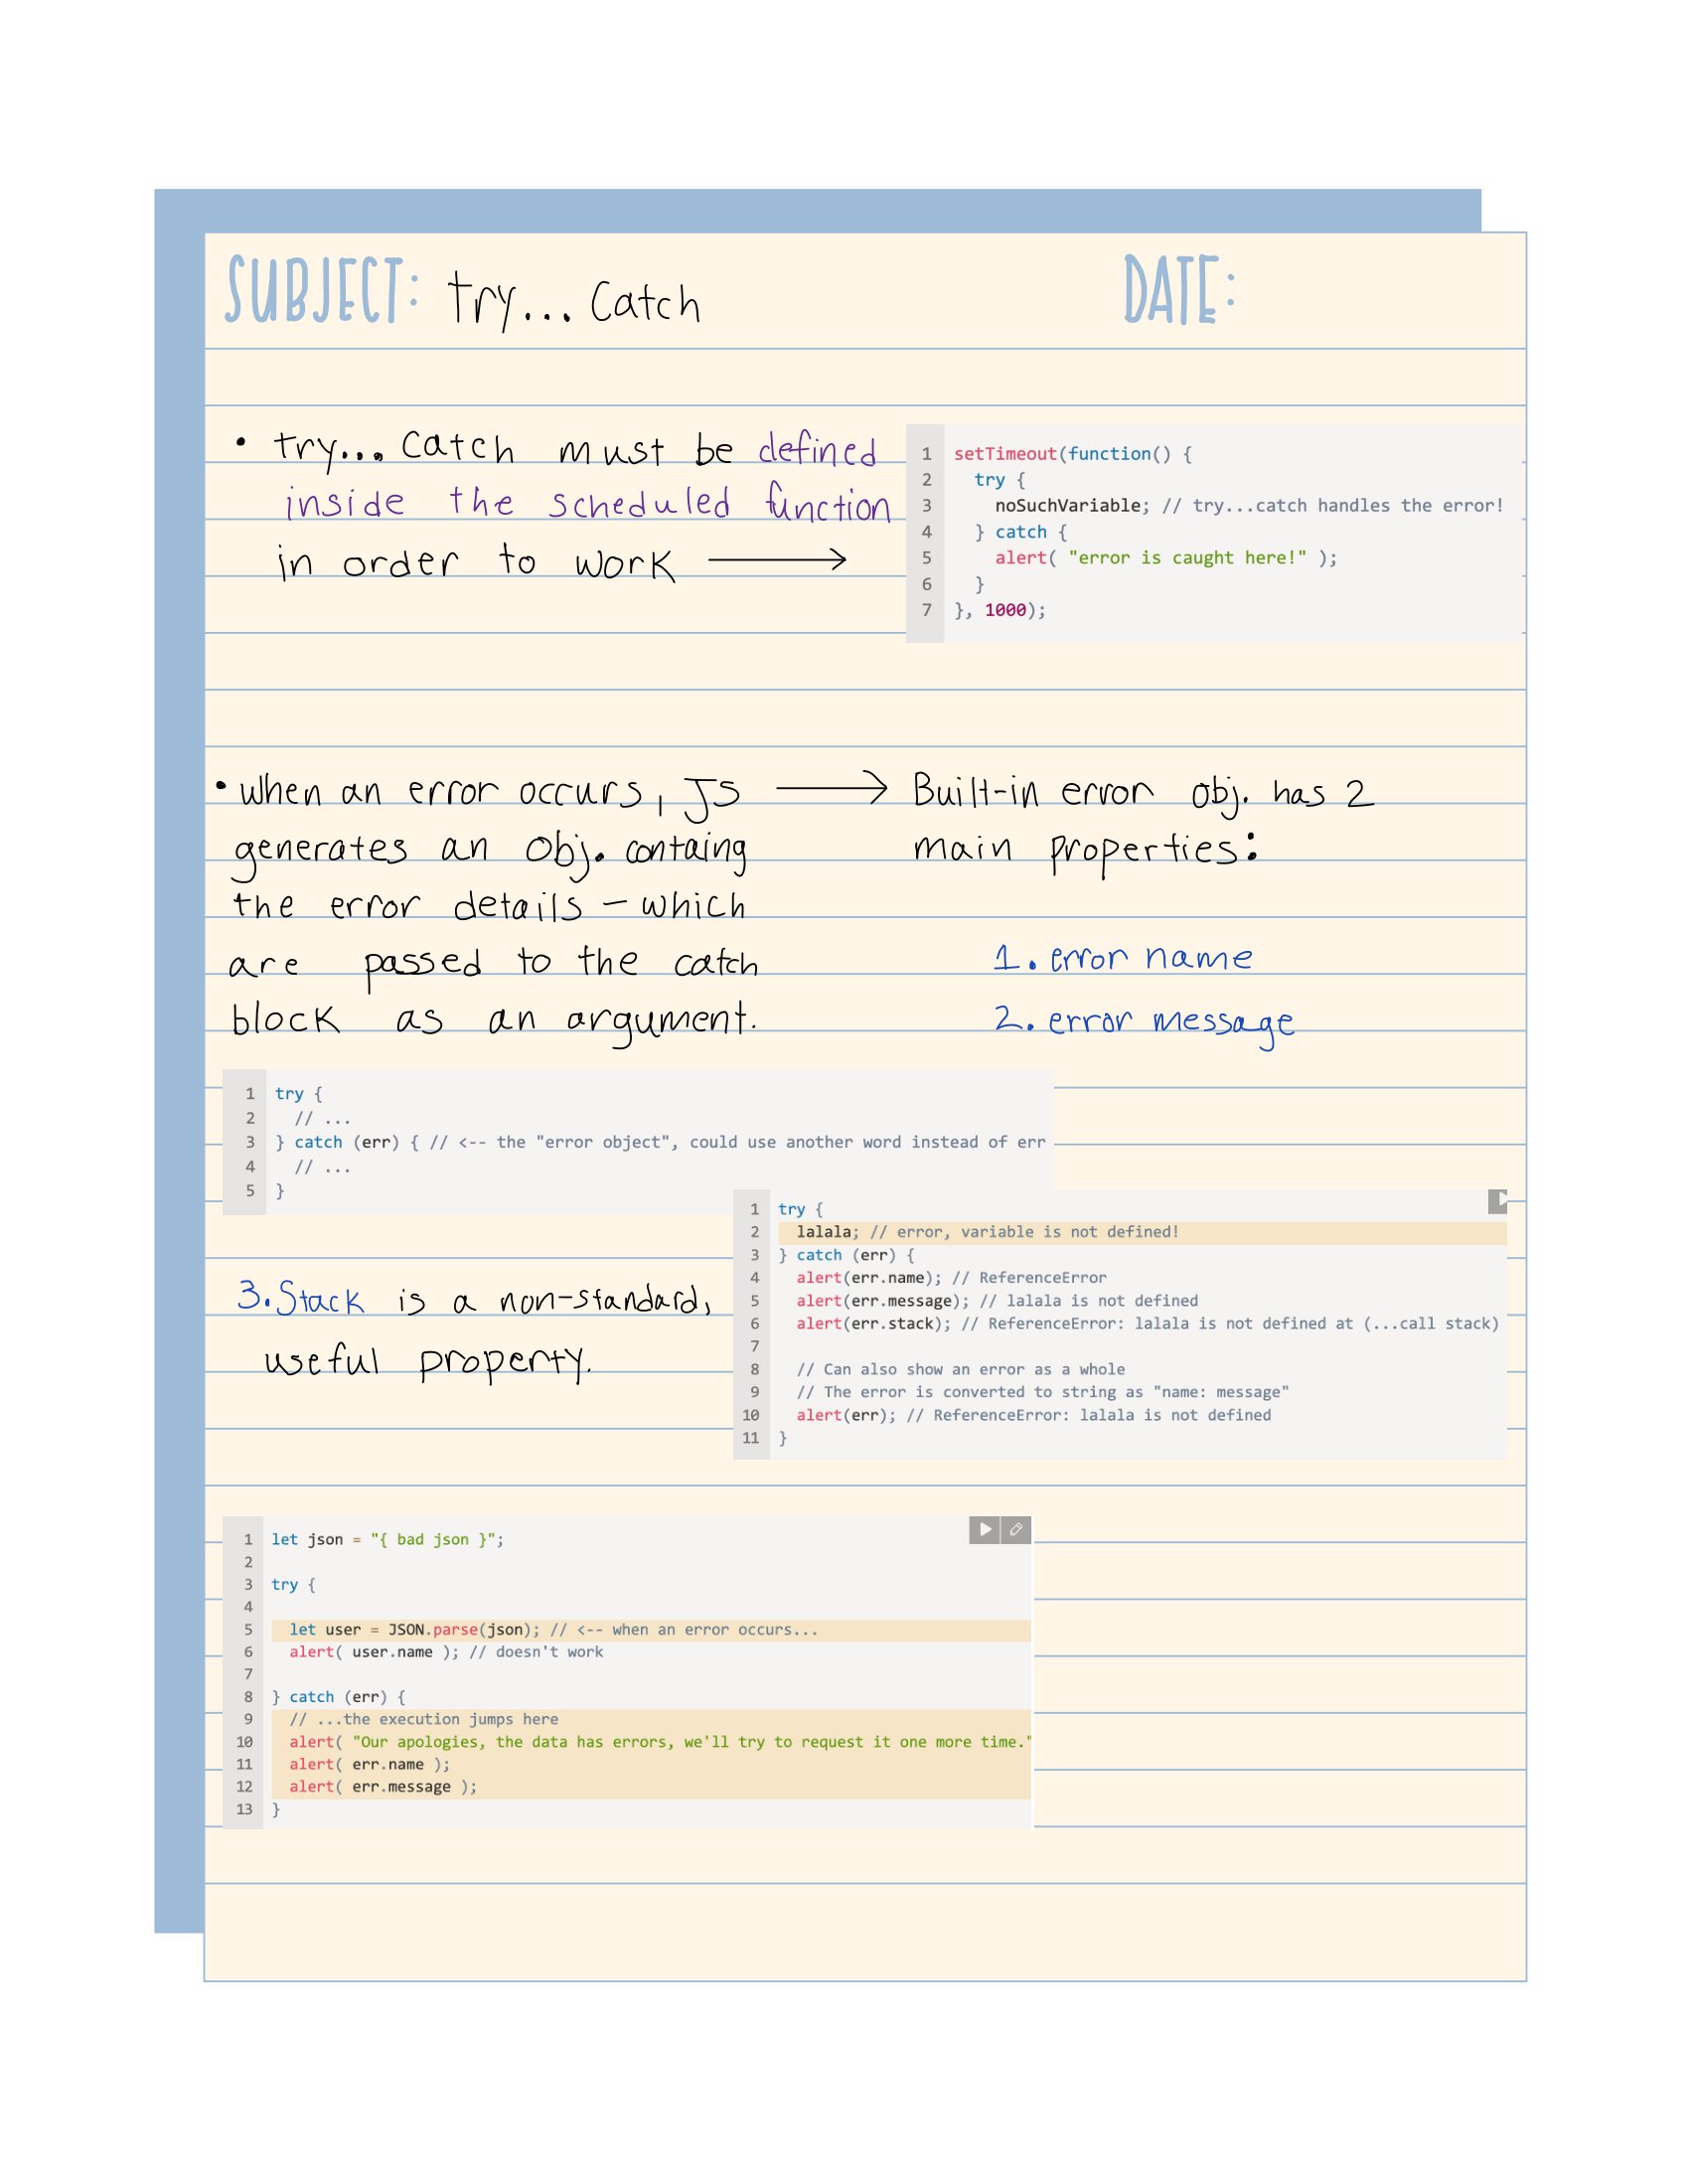 SUBJECT: try... Catch
DATE:
• try... Catch must be defined
inside the scheduled function
in order to work ⟶
1 setTimeout(function() {
2   try {
3     noSuchVariable; // try...catch handles the error!
4   } catch {
5     alert( "error is caught here!" );
6   }
7 }, 1000);
• when an error occurs, JS ⟶
generates an obj. containg
the error details – which
are passed to the catch
block as an argument.
Built-in error obj. has 2
main properties:
1. error name
2. error message
1 try {
2   // ...
3 } catch (err) { // <-- the "error object", could use another word instead of err
4   // ...
5 }
3. Stack is a non-standard,
useful property.
1 try {
2   lalala; // error, variable is not defined!
3 } catch (err) {
4   alert(err.name); // ReferenceError
5   alert(err.message); // lalala is not defined
6   alert(err.stack); // ReferenceError: lalala is not defined at (...call stack)
7
8   // Can also show an error as a whole
9   // The error is converted to string as "name: message"
10   alert(err); // ReferenceError: lalala is not defined
11 }
1 let json = "{ bad json }";
2
3 try {
4
5   let user = JSON.parse(json); // <-- when an error occurs...
6   alert( user.name ); // doesn't work
7
8 } catch (err) {
9   // ...the execution jumps here
10   alert( "Our apologies, the data has errors, we'll try to request it one more time."
11   alert( err.name );
12   alert( err.message );
13 }